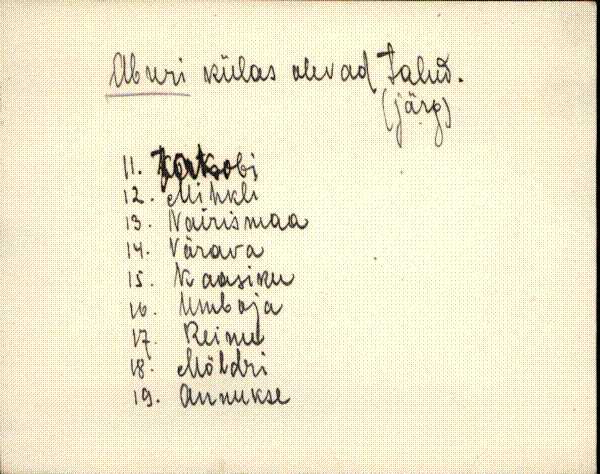 Aburi külas olevad talud.
(järg)
11.
12. Mihkli
13. Nairismaa
14. Värava
15. Kaasiku
16. Umboja
17. Reinu
18. Möldri
19. Annukse